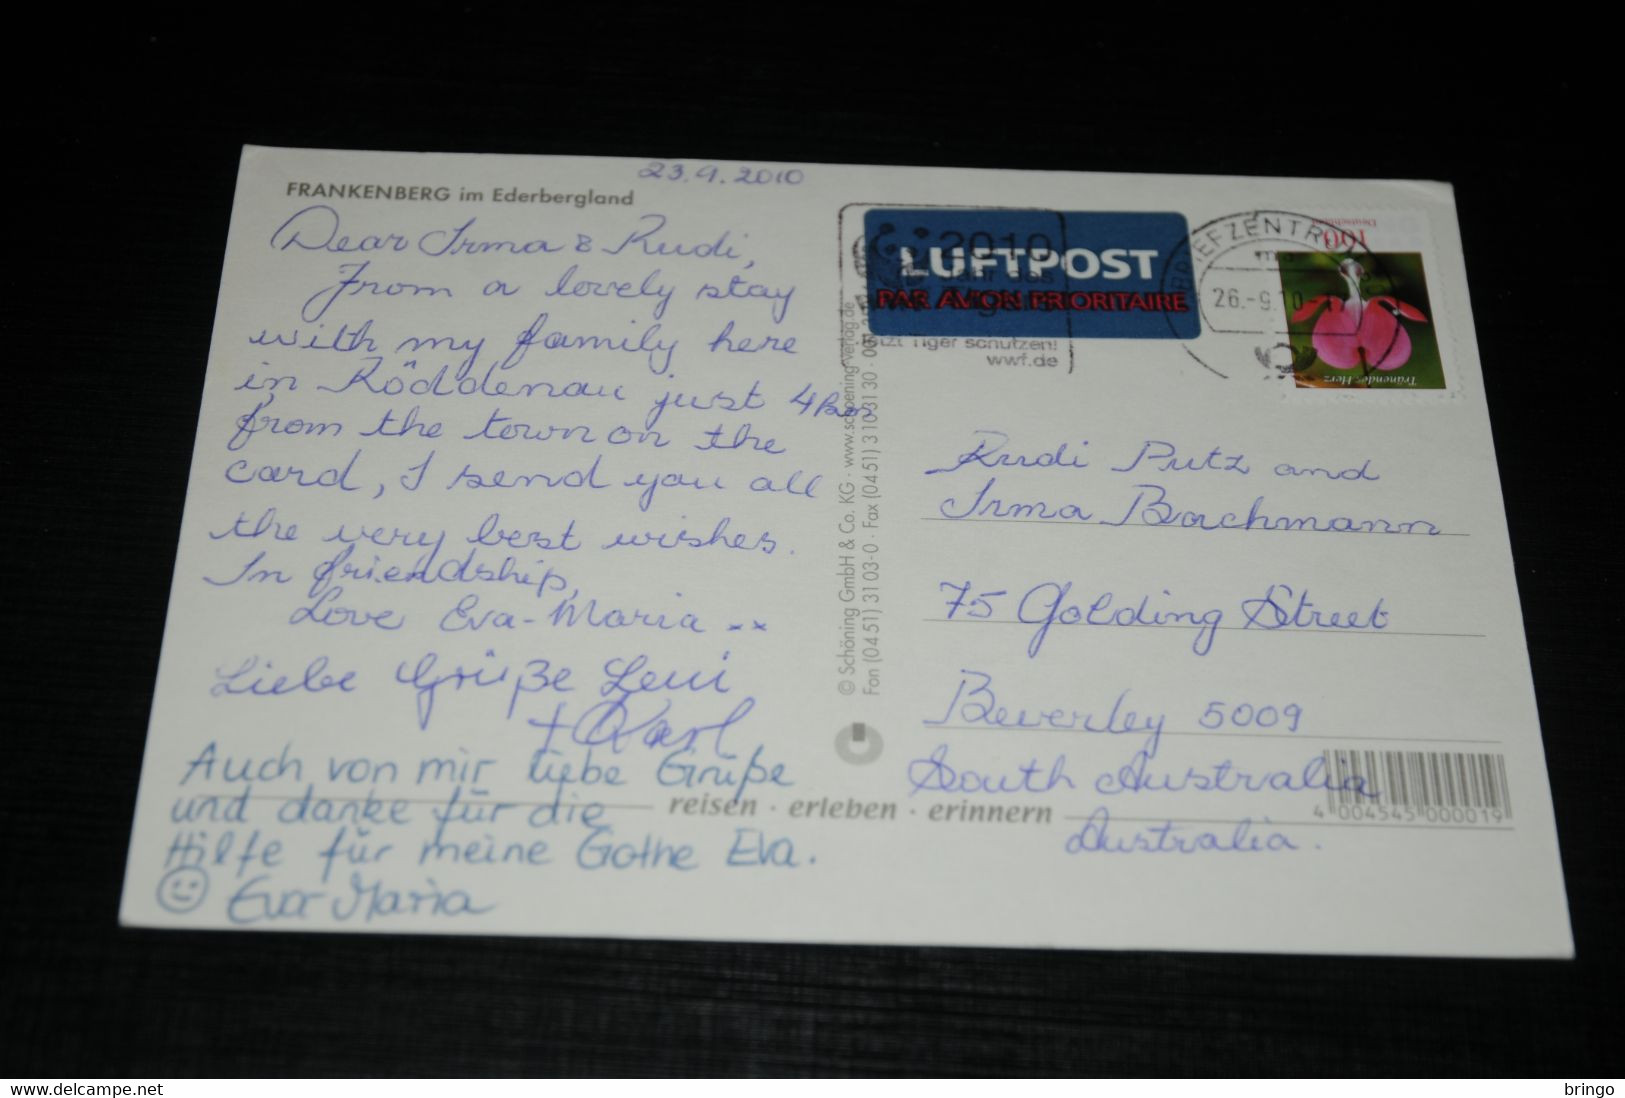 23.9.2010
FRANKENBERG im Ederbergland
Dear Irma & Rudi,
From a lovely stay
with my family here
in Röddenau just 4 km
from the town on the
card, I send you all
the very best wishes.
In friendship,
Love Eva-Maria xx
Liebe Grüße Leni
+ Karl
Auch von mir liebe Grüße
und danke für die
Hilfe für meine Gothe Eva.
Eva-Maria
© Schöning GmbH & Co. KG · www.schoening-verlag.de
Fon (0451) 3103-0 · Fax (0451) 3103130
reisen · erleben · erinnern
LUFTPOST
PAR AVION PRIORITAIRE
2010
Jahr des
Tigers
Tiger schützen!
wwf.de
BRIEFZENTRUM
26.-9.10
Deutschland
100
Tränendes Herz
Rudi Putz and
Irma Bachmann
75 Golding Street
Beverley 5009
South Australia
Australia.
4 004545 000019
delcampe.net
bringo